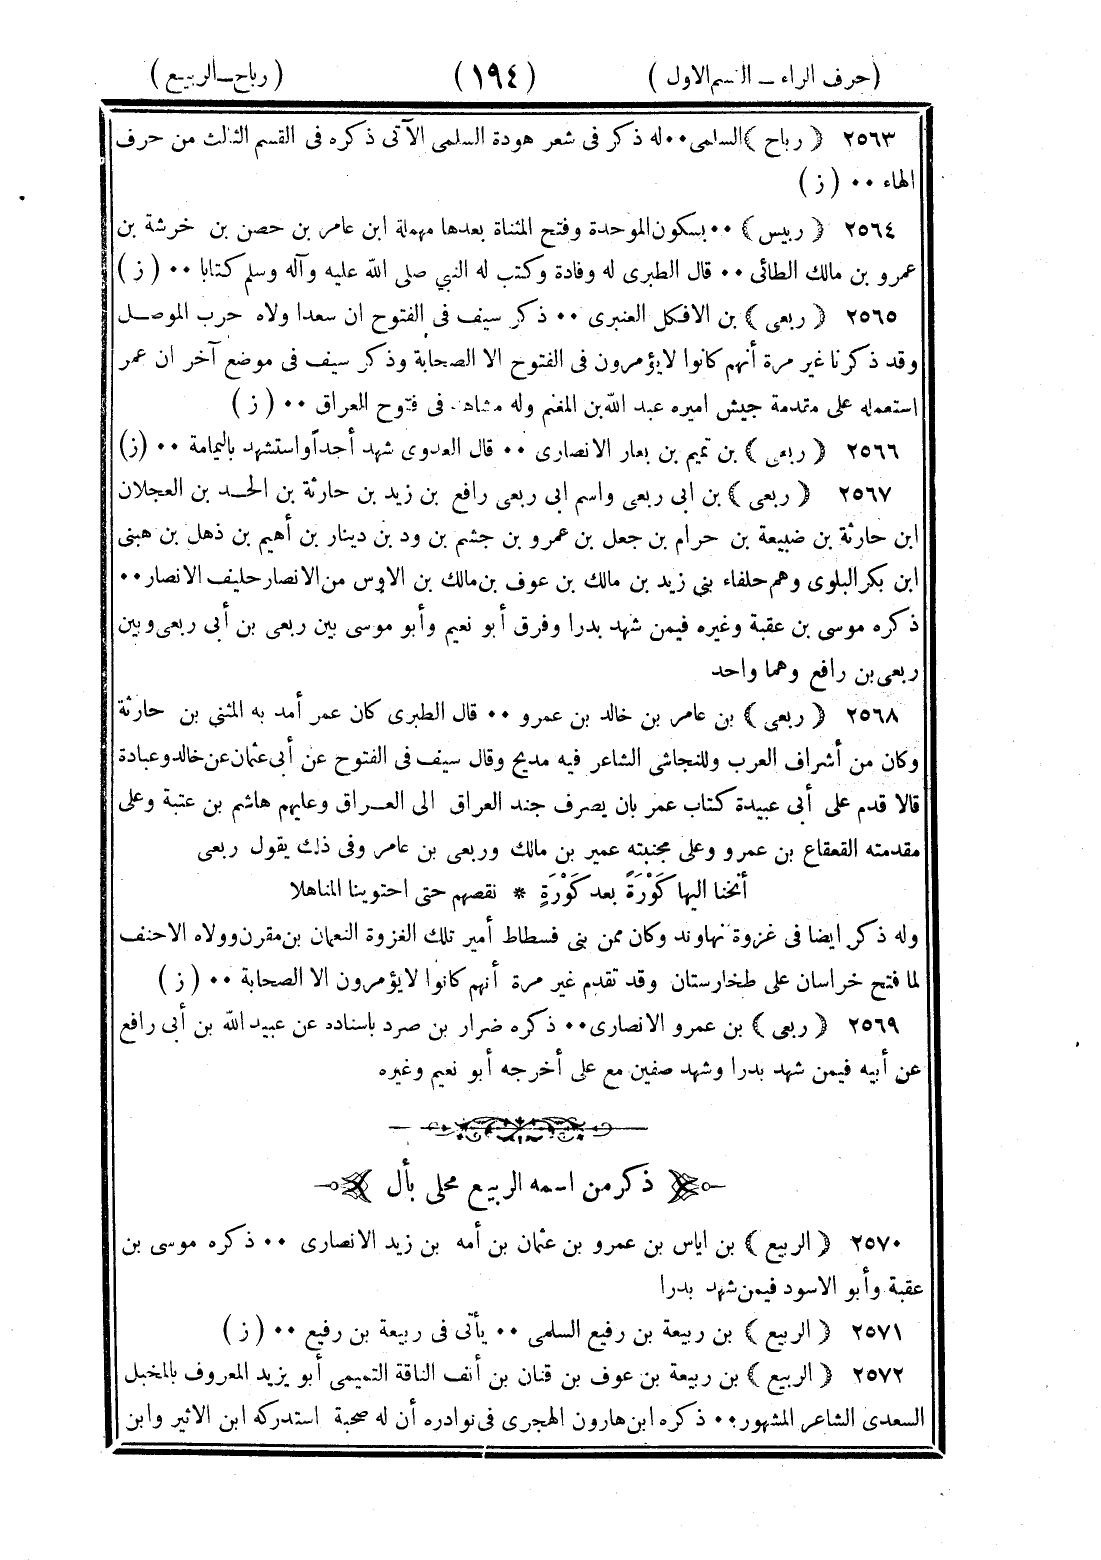 (حرف الراء ـ القسم الاول) (١٩٤) (رباح ـ الربيع)
٢٥٦٣ ﴿ رباح ﴾ السلمى ٠٠ له ذكر فى شعر هودة السلمى الآتى ذكره فى القسم الثالث من حرف
الهاء ٠٠ ( ز )
٢٥٦٤ ﴿ ربيس ﴾ ٠٠ بسكون الموحدة وفتح المثناة بعدها مهملة ابن عامر بن حصن بن خرشة بن
عمرو بن مالك الطائى ٠٠ قال الطبرى له وفادة وكتب له النبي صلى الله عليه وآله وسلم كتابا ٠٠ ( ز )
٢٥٦٥ ﴿ ربعى ﴾ بن الافكل العنبرى ٠٠ ذكر سيف فى الفتوح ان سعدا ولاه حرب الموصل
وقد ذكرنا غير مرة أنهم كانوا لايؤمرون فى الفتوح الا الصحابة وذكر سيف فى موضع آخر ان عمر
استعمله على مقدمة جيش اميره عبد الله بن المغنم وله مشاهد فى فتوح العراق ٠٠ ( ز )
٢٥٦٦ ﴿ ربعى ﴾ بن تميم بن يعار الانصارى ٠٠ قال العدوى شهد أحداً واستشهد باليمامة ٠٠ (ز)
٢٥٦٧ ﴿ ربعى ﴾ بن ابى ربعى واسم ابى ربعى رافع بن زيد بن حارثة بن الجد بن العجلان
ابن حارثة بن ضبيعة بن حرام بن جعل بن عمرو بن جشم بن ود بن دينار بن أهيم بن ذهل بن هبنى
ابن بكر البلوى وهم حلفاء بني زيد بن مالك بن عوف بن مالك بن الاوس من الانصار حليف الانصار ٠٠
ذكره موسى بن عقبة وغيره فيمن شهد بدرا وفرق أبو نعيم وأبو موسى بين ربعى بن أبى ربعى وبين
ربعى بن رافع وهما واحد
٢٥٦٨ ﴿ ربعى ﴾ بن عامر بن خالد بن عمرو ٠٠ قال الطبرى كان عمر أمد به المثنى بن حارثة
وكان من أشراف العرب وللنجاشى الشاعر فيه مديح وقال سيف فى الفتوح عن أبى عثمان عن خالد وعبادة
قالا قدم على أبى عبيدة كتاب عمر بان يصرف جند العراق الى العراق وعليهم هاشم بن عتبة وعلى
مقدمته القعقاع بن عمرو وعلى مجنبته عمير بن مالك وربعى بن عامر وفى ذلك يقول ربعى
أنخنا اليها كَوْرَةً بعد كَوْرَةٍ * نقصهم حتى احتوينا المناهلا
وله ذكر ايضا فى غزوة نهاوند وكان ممن بنى فسطاط أمير تلك الغزوة النعمان بن مقرن وولاه الاحنف
لما فتح خراسان على طخارستان وقد تقدم غير مرة أنهم كانوا لايؤمرون الا الصحابة ٠٠ ( ز )
٢٥٦٩ ﴿ ربعى ﴾ بن عمرو الانصارى ٠٠ ذكره ضرار بن صرد باسناده عن عبيد الله بن أبى رافع
عن أبيه فيمن شهد بدرا وشهد صفين مع على أخرجه أبو نعيم وغيره
ذكر من اسمه الربيع محلى بأل
٢٥٧٠ ﴿ الربيع ﴾ بن اياس بن عمرو بن عثمان بن أمه بن زيد الانصارى ٠٠ ذكره موسى بن
عقبة وأبو الاسود فيمن شهد بدرا
٢٥٧١ ﴿ الربيع ﴾ بن ربيعة بن رفيع السلمى ٠٠ يأتى فى ربيعة بن رفيع ٠٠ ( ز )
٢٥٧٢ ﴿ الربيع ﴾ بن ربيعة بن عوف بن قنان بن أنف الناقة التميمى أبو يزيد المعروف بالمخبل
السعدى الشاعر المشهور ٠٠ ذكره ابن هارون الهجرى فى نوادره أن له صحبة استدركه ابن الاثير وابن